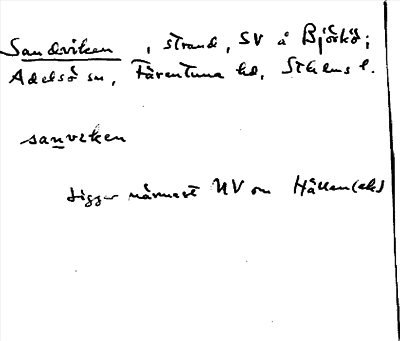 Sandviken, strand, SV å Björkö;
Adelsö sn, Färentuna hd, Sthlms l.
sanviken
Ligger närmast NV om Hällen(ek)